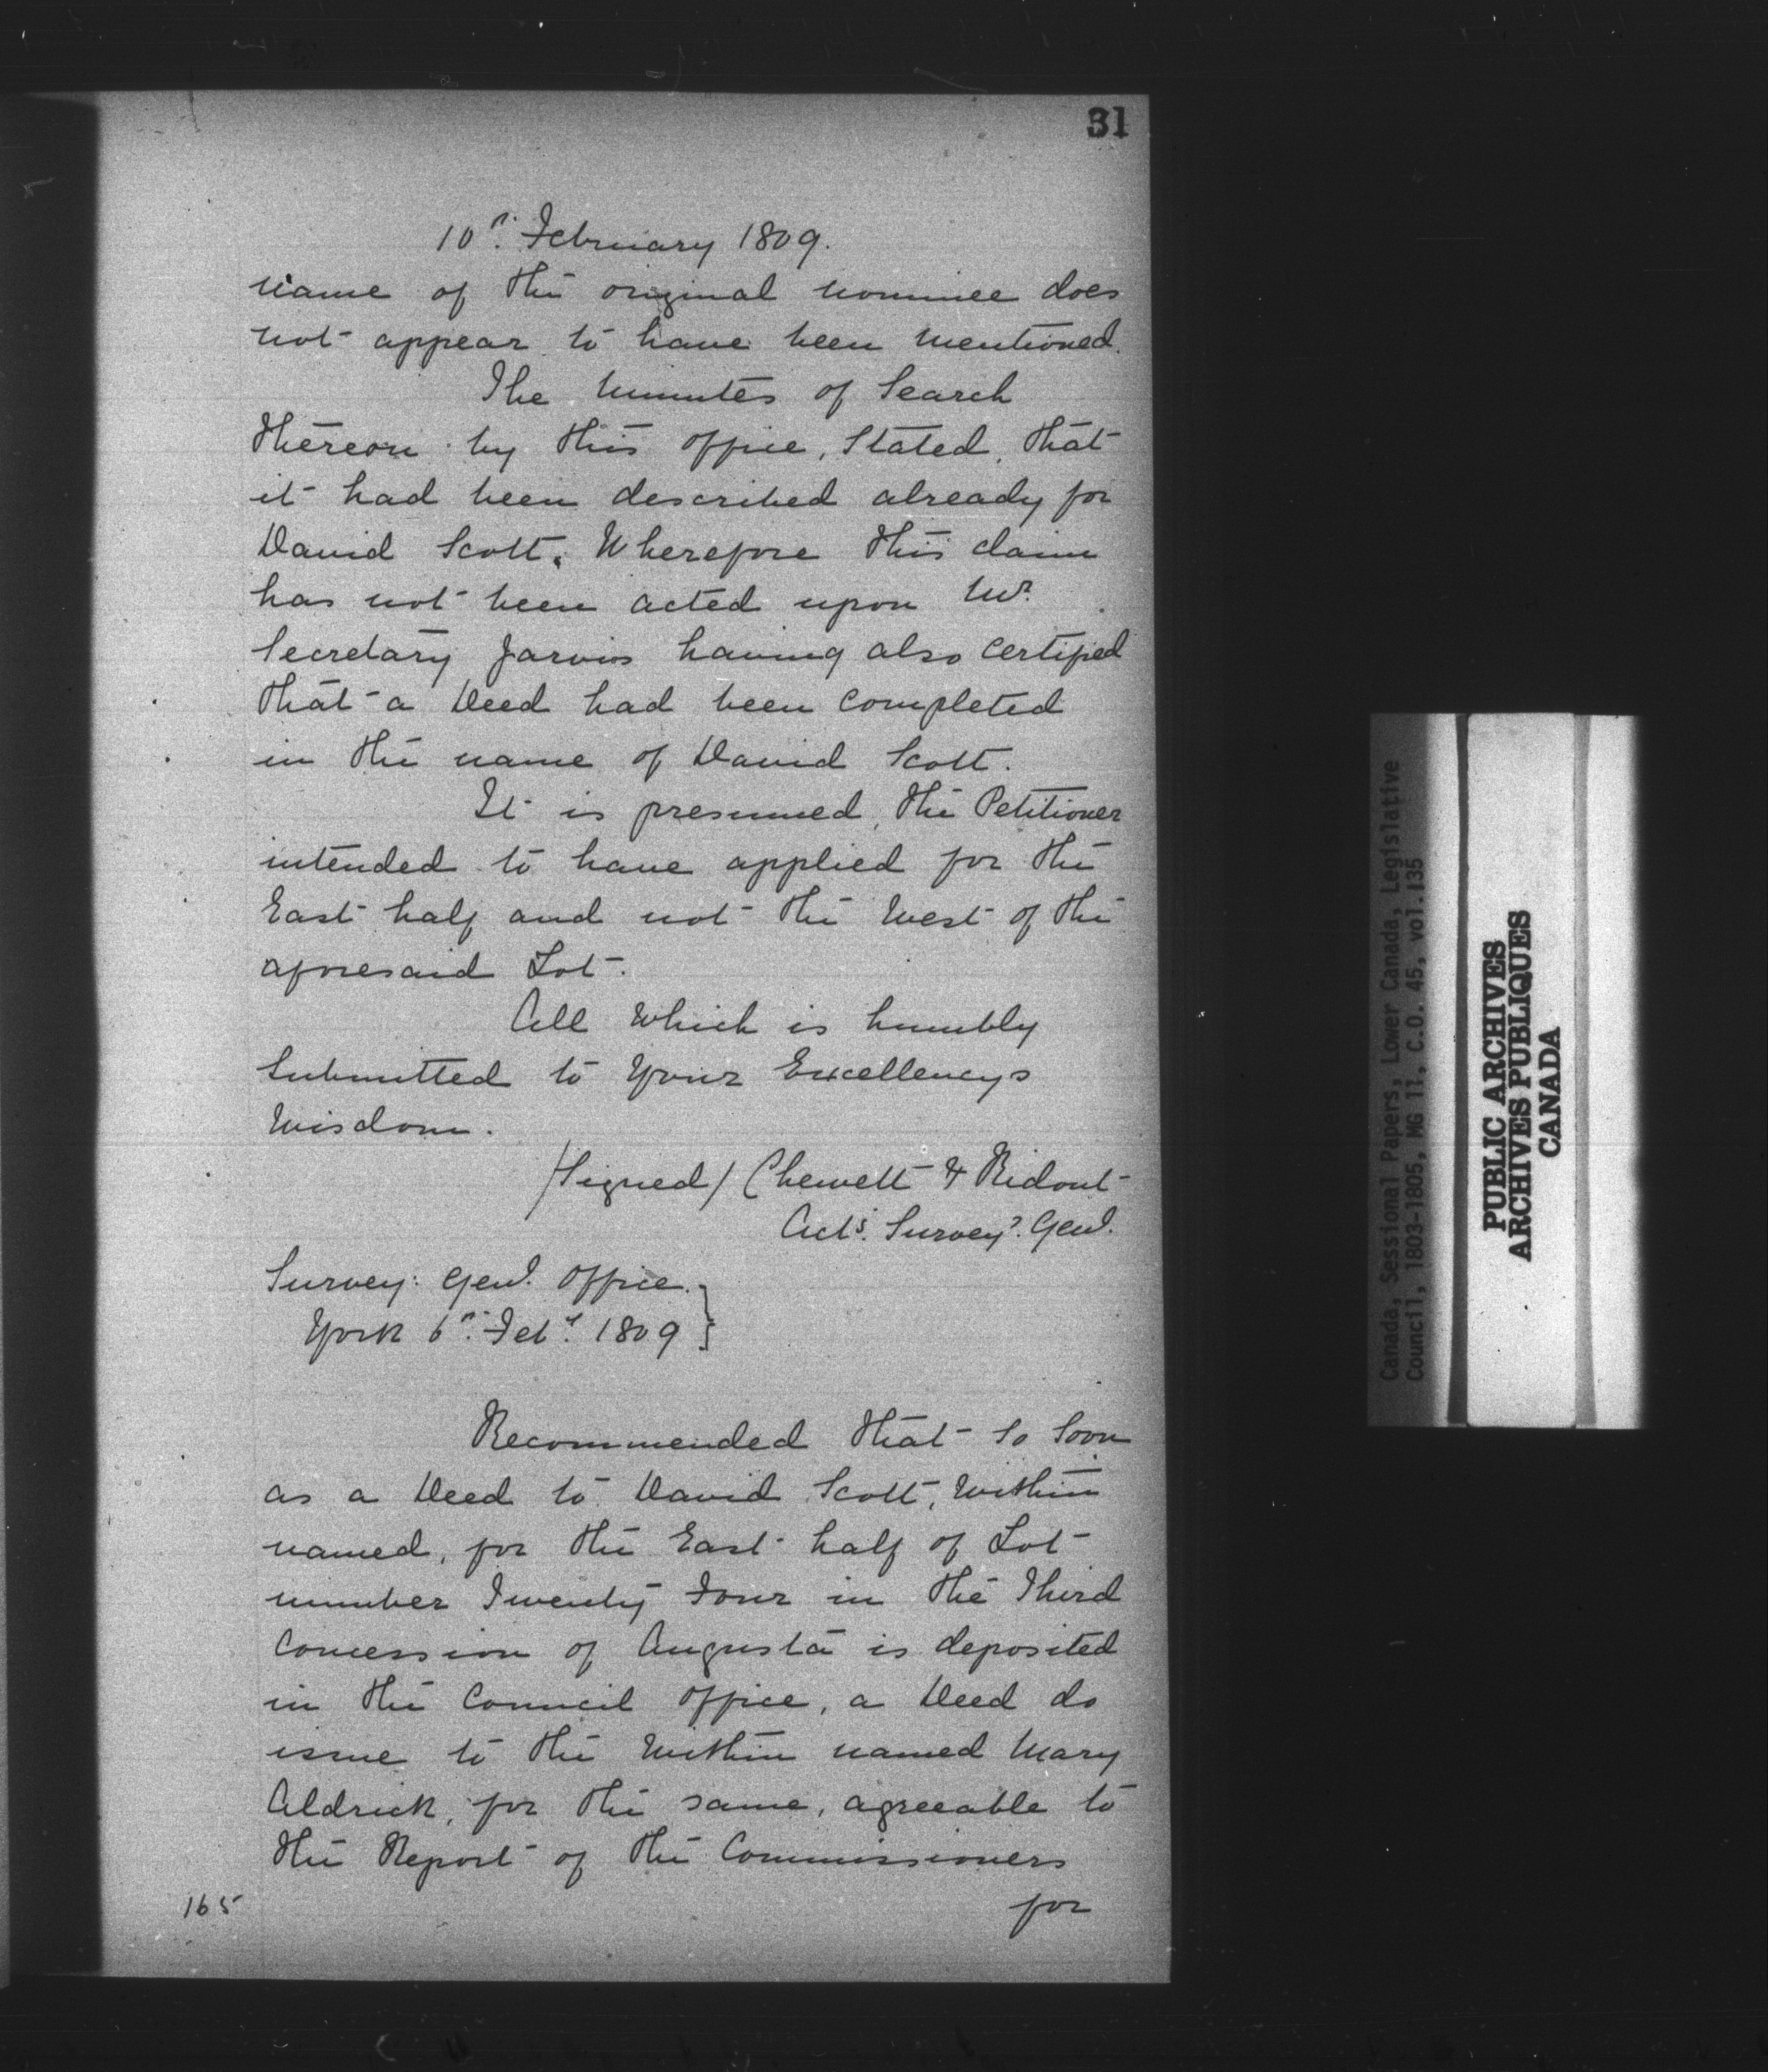 31
10th. February 1809.
name of the original nominee does
not appear to have been mentioned.
The minutes of Search
thereon by this office, Stated, that
it had been described already for
David Scott. Wherefore this claim
has not been acted upon Mr.
Secretary Jarvis having also certified
that a Deed had been completed
in the name of David Scott.
It is presumed, the Petitioner
intended to have applied for the
East half and not the West of the
aforesaid Lot.
All which is humbly
Submitted to Your Excellencys
Wisdom.
/Signed/ Chewett & Ridout
Acts. Survey?. Genl.
Survey: Genl. Office.
York 6th. Feby. 1809
Recommended that so soon
as a Deed to David Scott, within
named, for the East half of Lot
number Twenty Four in the Third
Concession of Augusta is deposited
in the Council Office, a Deed do
issue to the within named Mary
Aldrick, for the same, agreeable to
the Report of the Commissioners
for
165
Canada, Sessional Papers, Lower Canada, Legislative
Council, 1803-1805, MG 11, C.O. 45, vol.135
PUBLIC ARCHIVES
ARCHIVES PUBLIQUES
CANADA